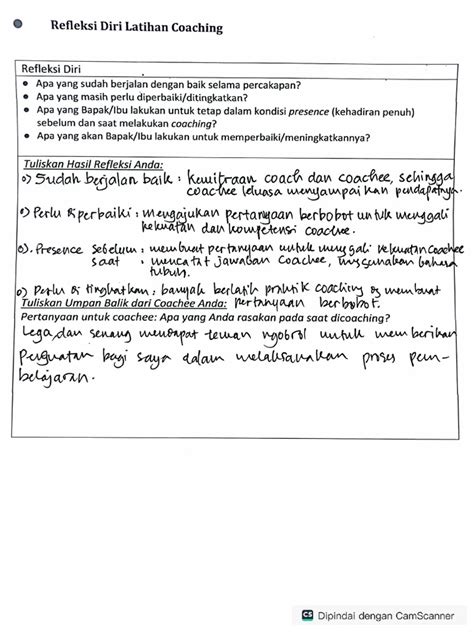 Refleksi Diri Latihan Coaching
Refleksi Diri
● Apa yang sudah berjalan dengan baik selama percakapan?
● Apa yang masih perlu diperbaiki/ditingkatkan?
● Apa yang Bapak/Ibu lakukan untuk tetap dalam kondisi presence (kehadiran penuh)
sebelum dan saat melakukan coaching?
● Apa yang akan Bapak/Ibu lakukan untuk memperbaiki/meningkatkannya?
Tuliskan Hasil Refleksi Anda:
o) Sudah berjalan baik : kemitraan coach dan coachee, sehingga
coachee leluasa menyampaikan pendapatnya.
o) Perlu diperbaiki : mengajukan pertanyaan berbobot untuk menggali
kekuatan dan kompetensi coachee.
o). Presence sebelum : membuat pertanyaan untuk menggali kekuatan coachee
saat : mencatat jawaban coachee, menggunakan bahasa
tubuh.
o) Perlu di tingkatkan : banyak berlatih praktik coaching dg membuat
Tuliskan Umpan Balik dari Coachee Anda: pertanyaan berbobot.
Pertanyaan untuk coachee: Apa yang Anda rasakan pada saat dicoaching?
Lega dan senang mendapat teman ngobrol untuk memberikan
penguatan bagi saya dalam melaksanakan proses pem-
belajaran.
CS Dipindai dengan CamScanner